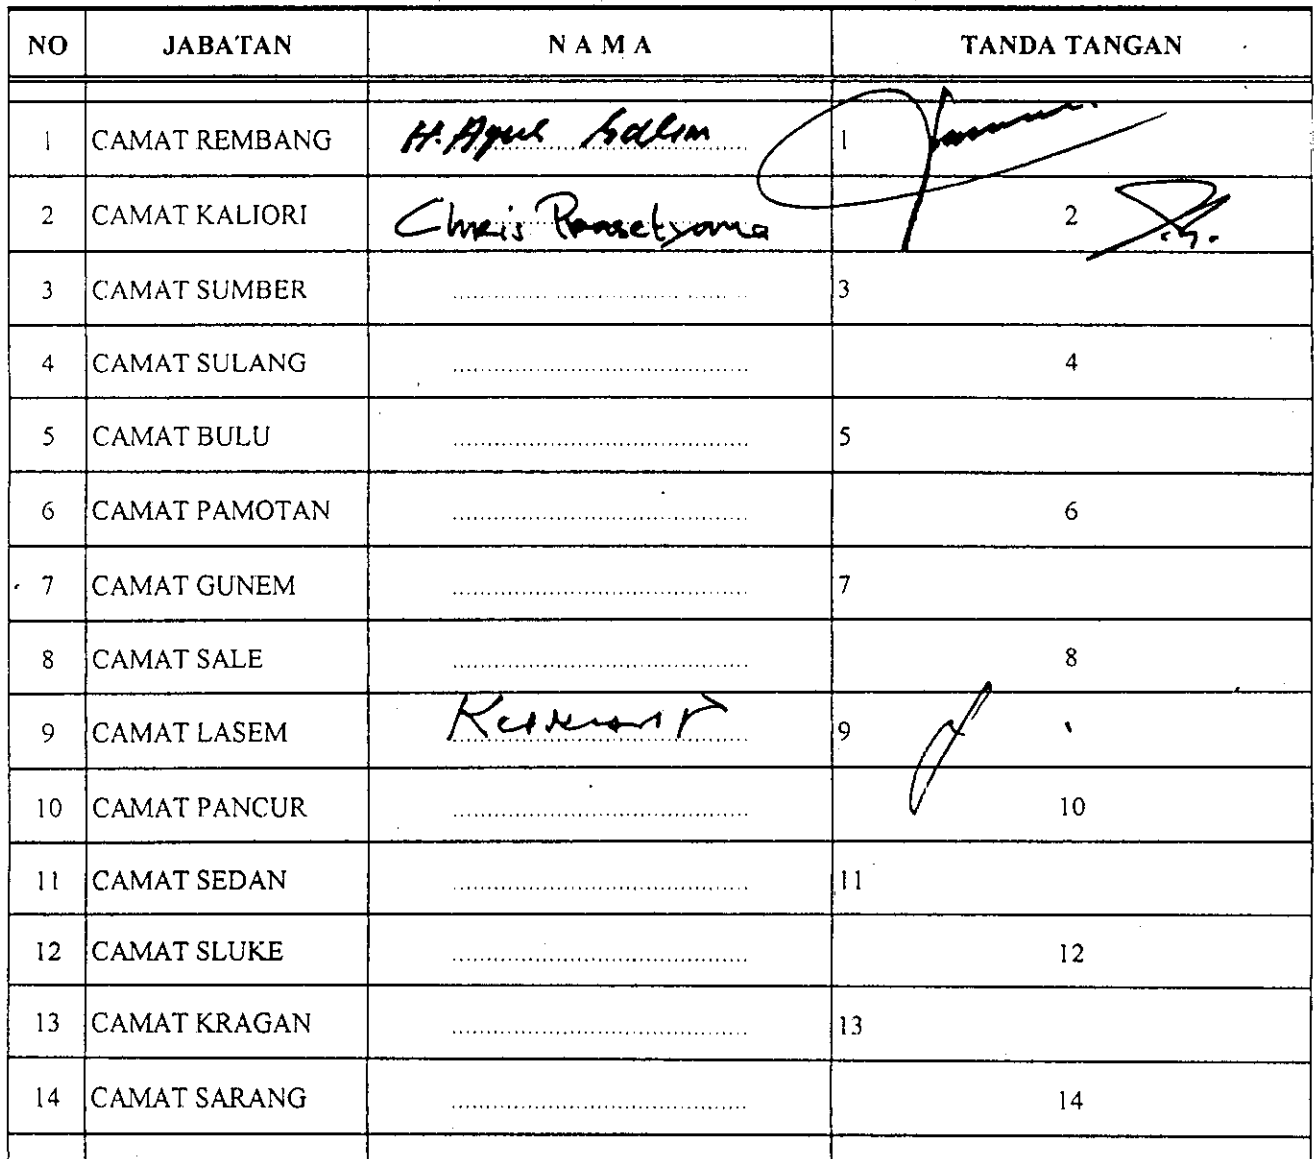 NO JABATAN N A M A TANDA TANGAN
1 CAMAT REMBANG H. Agus Salim 1
2 CAMAT KALIORI Chris Prasetyama 2
3 CAMAT SUMBER ........................................ 3
4 CAMAT SULANG ........................................ 4
5 CAMAT BULU ........................................ 5
6 CAMAT PAMOTAN ........................................ 6
7 CAMAT GUNEM ........................................ 7
8 CAMAT SALE ........................................ 8
9 CAMAT LASEM 9
10 CAMAT PANCUR ........................................ 10
11 CAMAT SEDAN ........................................ 11
12 CAMAT SLUKE ........................................ 12
13 CAMAT KRAGAN ........................................ 13
14 CAMAT SARANG ........................................ 14